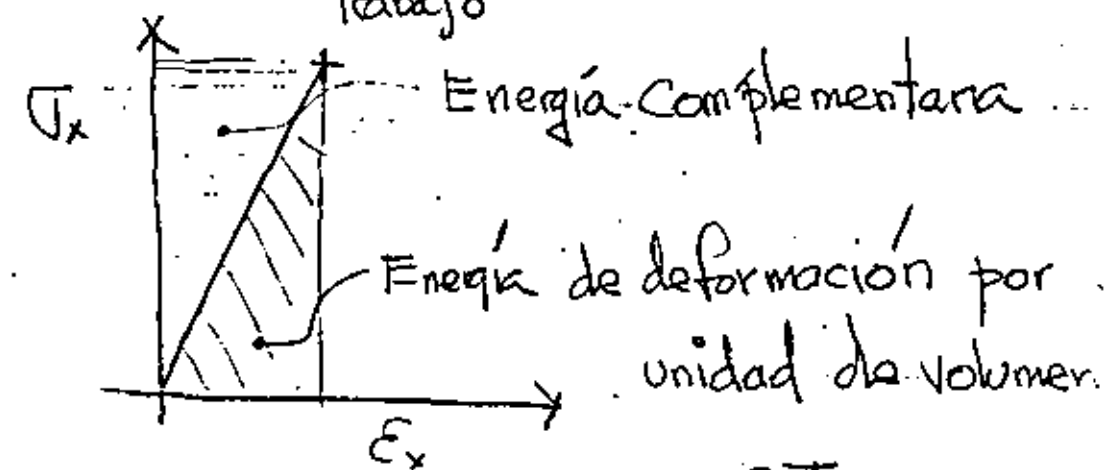 Trabajo
σx
Energía Complementaria
Energía de deformación por
unidad de volumen.
εx